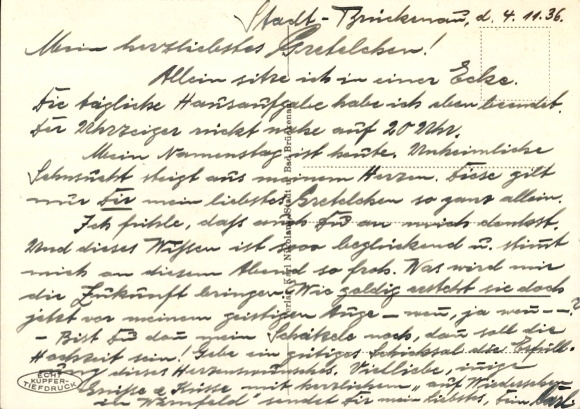 Stadt-Brückenau, d. 4.11.36.
Mein herzliebstes Gretelchen!
Allein sitze ich in einer Ecke.
Die tägliche Hausaufgabe habe ich eben beendet.
Der Uhrzeiger rückt nahe auf 20 Uhr.
Mein Namenstag ist heute. Unheimliche
Sehnsucht steigt aus meinem Herzen. Diese gilt
nur Dir mein liebstes Gretelchen so ganz allein.
Ich fühle, daß auch Du an mich denkst.
Und dieses Wißen ist sooo beglückend u. stimmt
mich an diesem Abend so froh. Was wird mir
die Zukunft bringen. Wie goldig ersteht sie doch
jetzt vor meinem geistigen Auge – wen, ja wen – – ?
– Bist Du dan mein Schäkele noch, dan soll die
Hochzeit sein! Gebe ein gütiges Schicksal die Erfüll-
ung dieses Herzenswunsches. Vielliebe, innige
Grüße & Küsse mit herzlichem „auf Wiedersehen
in Wernfeld" sendet Dir mein liebstes, Dein Karl.
Verlag Karl Nikolaus, Stadt u. Bad Brückenau
ECHT
KUPFER-
TIEFDRUCK